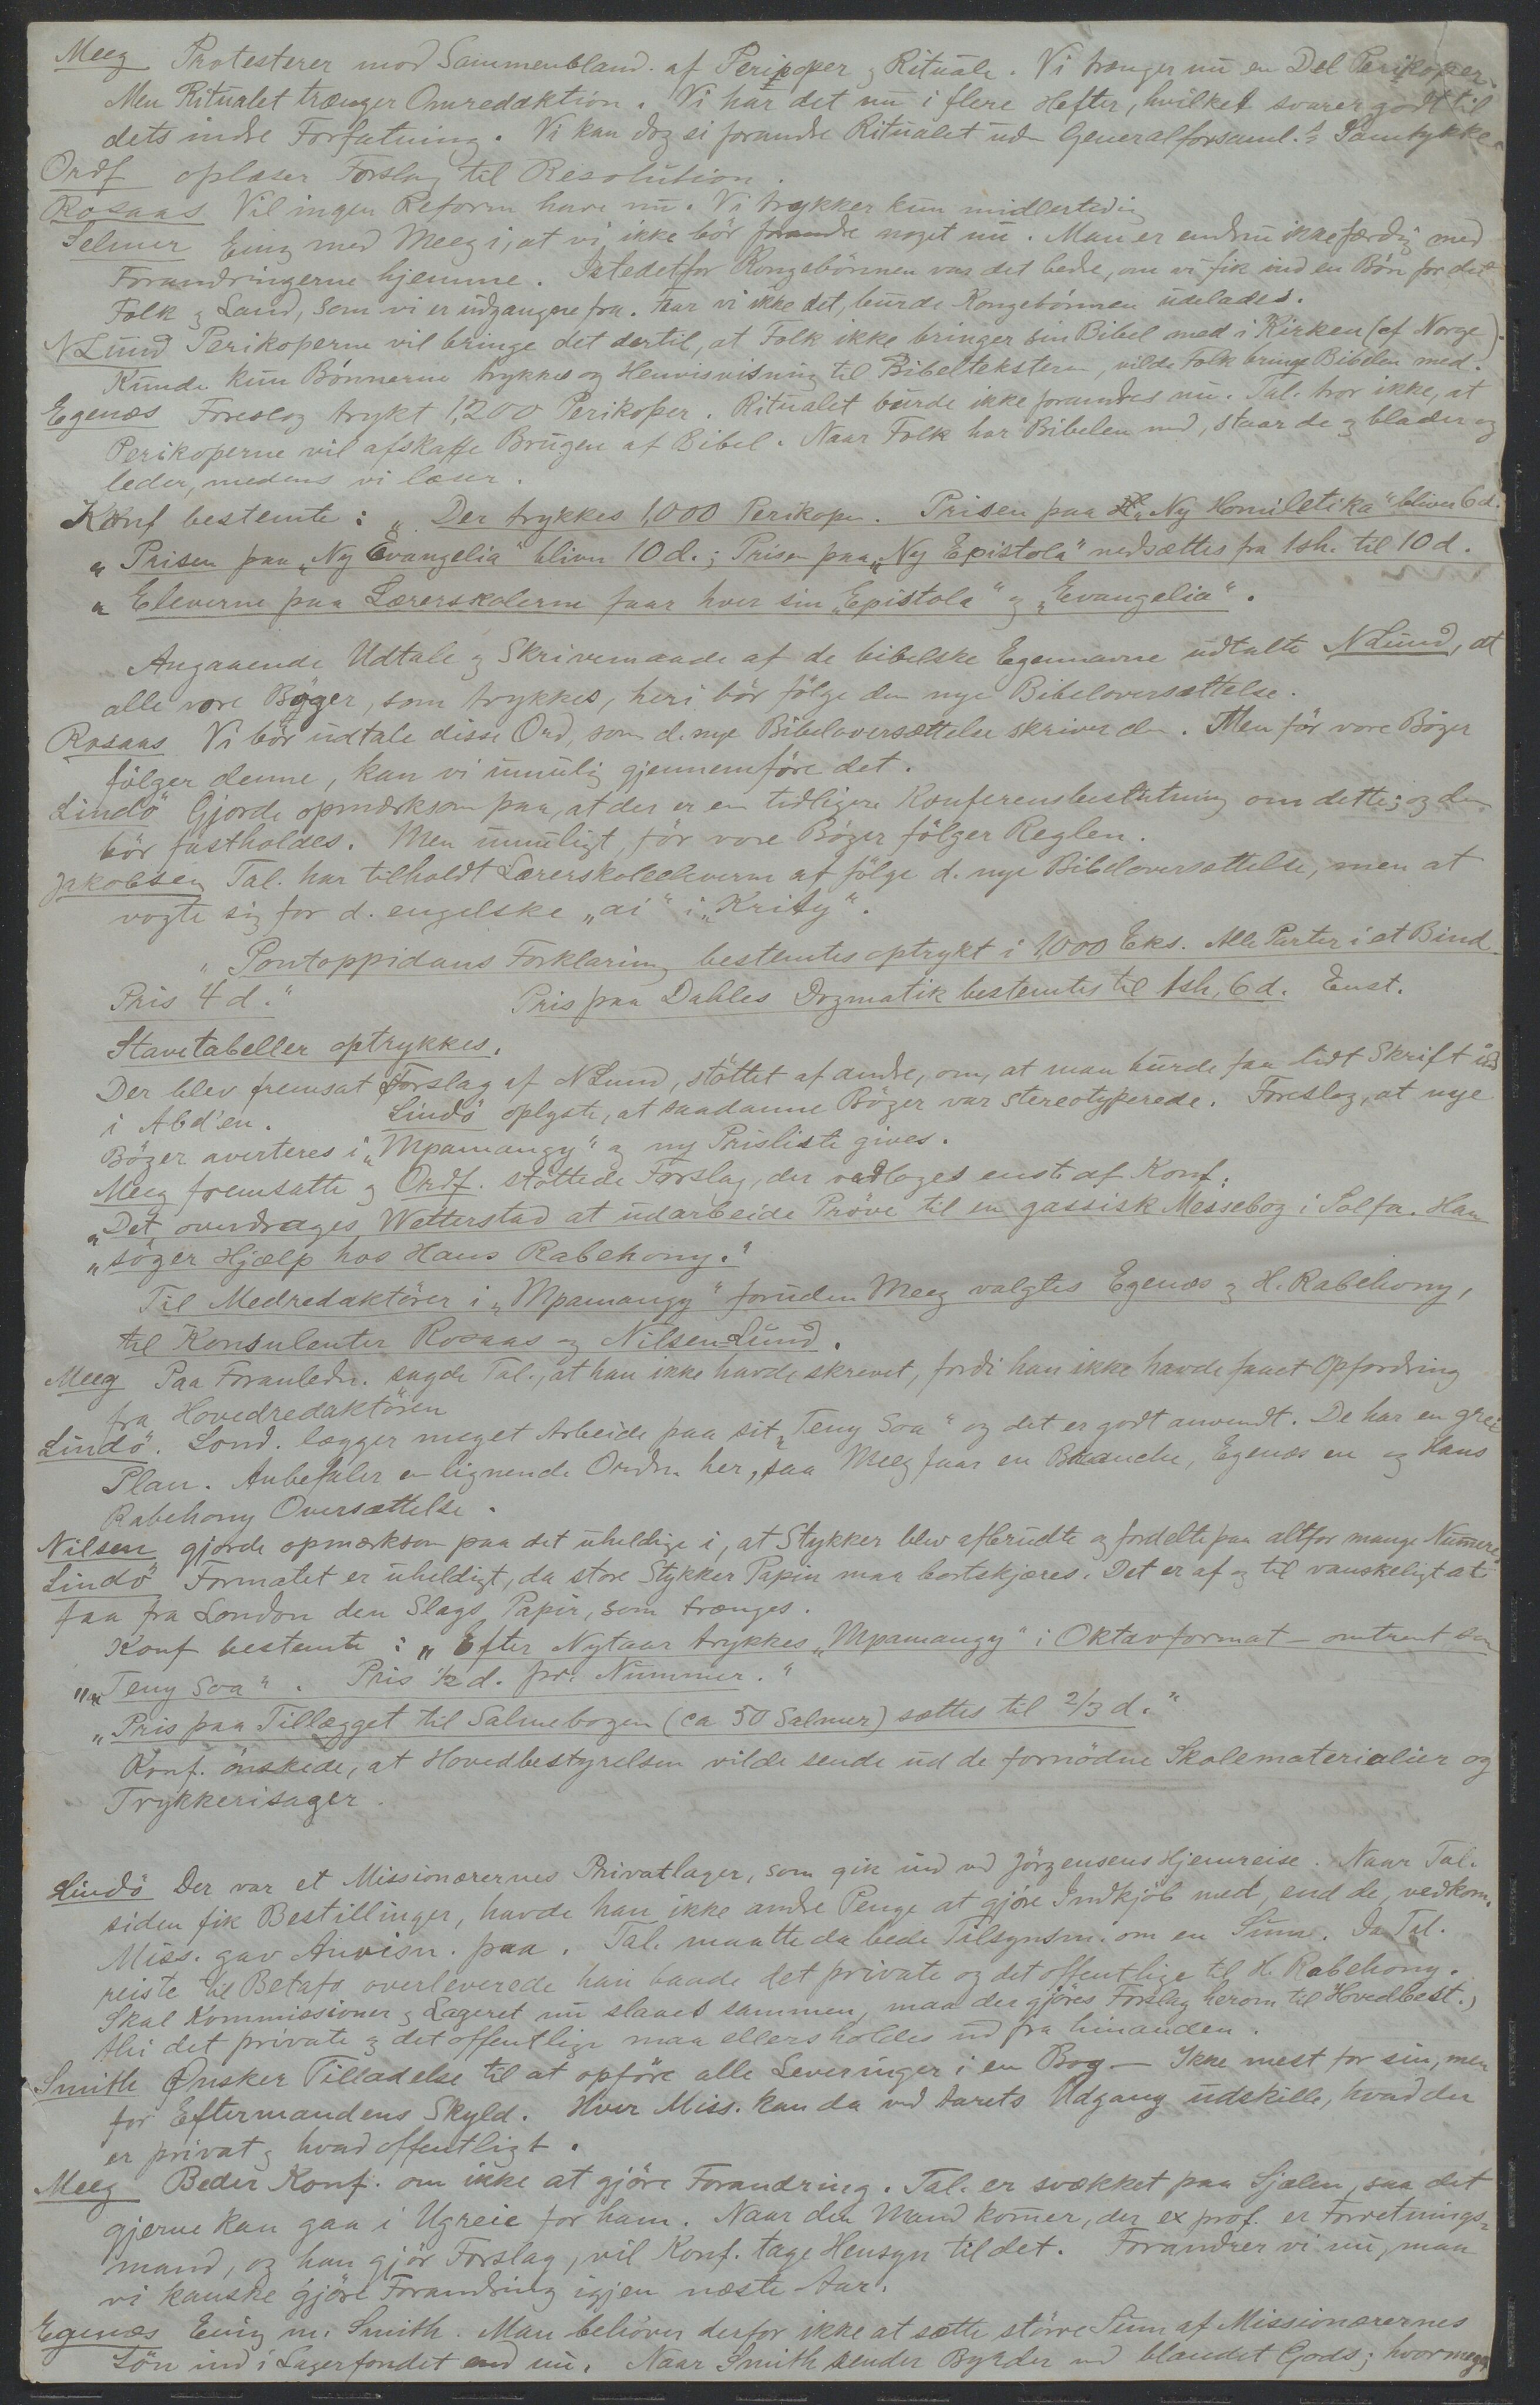 Meeg Protesterer mod Sammenbland. af Perikoper og Rituale. Vi trænger nu en Del Perikoper.
Men Ritualet trænger Omredaktion. Vi har det nu i flere Hefter, hvilket svarer godt til
dets indre Forfatning. Vi kan dog ei forandre Ritualet ud Generalforsaml.'s Samtykke.
Ordf oplæser Forslag til Resolution.
Rosaas Vil ingen Reform have nu. Vi trykker kun midlertidig
Selmer Enig med Meeg i, at vi ikke bör forandre noget nu. Man er endnu ikke færdig med
Forandringerne hjemme. Istedetfor Kongebönnen var det bedre, om vi fik ind en Bön for det
Folk og Land, som vi er udgangne fra. Faar vi ikke det, burde Kongebönnen udelades.
NLund Perikoperne vil bringe det dertil, at Folk ikke bringer sin Bibel med i Kirken (cf Norge).
Kunde kun Bönnerne trykkes og Henvisvisning til Bibelteksten, vilde Folk bringe Bibelen med.
Egenæs Foreslog trykt 1,200 Perikoper. Ritualet burde ikke forandres nu. Tal. tror ikke, at
Perikoperne vil afskaffe Brugen af Bibel. Naar Folk har Bibelen med, staar de og blader og
leder, medens vi læser.
Konf bestemte: „Der trykkes 1,000 Perikoper. Prisen paa „Ny Homiletika" bliver 6 d.
„Prisen paa „Ny Evangelia" bliver 10 d.; Prisen paa „Ny Epistola" nedsættes fra 1 sh. til 10 d.
„Eleverne paa Lærerskolerne faar hver sin „Epistola" og „Evangelia".
Angaaende Udtale og Skrivemaade af de bibelske Egennavne udtalte NLund, at
alle vore Böger, som trykkes, heri bör fölge den nye Bibeloversættelse.
Rosaas Vi bör udtale disse Ord, som d. nye Bibeloversættelse skriver dem. Men för vore Böger
fölger denne, kan vi umulig gjennemföre det.
Lindö Gjorde opmærksom paa, at der er en tidligere Konferensbeslutning om dette; og den
bör fastholdes. Men umuligt, för vore Böger fölger Reglen.
Jakobsen Tal. har tilholdt Lærerskoleeleverne at fölge d. nye Bibeloversættelse, men at
vogte sig for d. engelske „ai" i „Kristy".
„Pontoppidans Forklaring bestemtes optrykt i 1,000 Eks. Alle Parter i et Bind.
Pris 4 d." Pris paa Dahles Dogmatik bestemtes til 1 sh, 6 d. Enst.
Stavetabeller optrykkes.
Der blev fremsat Forslag af NLund, stöttet af andre, om, at man burde faa lidt Skrift ind
i Abd'en. Lindö oplyste, at saadanne Böger var stereotyperede. Foreslog, at nye
Böger averteres i „Mpamangy" og ny Prisliste gives.
Meeg fremsatte og Ordf. stöttede Forslag, der vedtoges enst. af Konf.:
„Det overdrages Wetterstad at udarbeide Pröve til en gassisk Messebog i Solfa. Han
„söger Hjælp hos Hans Rabehony."
Til Medredaktörer i „Mpamangy" foruden Meeg valgtes Egenæs og H. Rabehony,
til Konsulenter Rosaas og Nilsen-Lund.
Meeg Paa Foranledn. sagde Tal., at han ikke havde skrevet, fordi han ikke havde faaet Opfordring
fra Hovedredaktören
Lindö. Lond. lægger meget Arbeide paa sit „Teny Soa" og det er godt anvendt. De har en grei
Plan. Anbefaler en lignende Ordn. her, saa Meeg faar en Branche, Egenæs en og Hans
Rabehony Oversættelse.
Nilsen gjorde opmærksom paa det uheldige i, at Stykker blev afbrudte og fordelte paa altfor mange Numere
Lindö Formatet er uheldigt, da store Stykker Papir maa bortskjæres. Det er af og til vanskeligt at
faa fra London den Slags Papir, som trænges.
Konf bestemte: „Efter Nytaar trykkes „Mpamangy" i Oktavformat – omtrent som
„„Teny Soa". Pris ½ d. pr. Nummer."
„Pris paa Tillægget til Salmebogen (ca 50 Salmer) sættes til 2/3 d."
Konf. önskede, at Hovedbestyrelsen vilde sende ud de fornödne Skolematerialier og
Trykkerisager.
Lindö Der var et Missionærernes Privatlager, som gik ind ved Jörgensens Hjemreise. Naar Tal.
siden fik Bestillinger, havde han ikke andre Penge at gjöre Indkjöb med, end de, vedkom.
Miss. gav Anvisn. paa. Tal. maatte da bede Tilsynsm. om en Sum. Da Tal.
reiste til Betafo overleverede han baade det private og det offentlige til H. Rabehony.
Skal Kommissioner og Lageret nu slaaes sammen, maa der gjöres Forslag herom til Hovedbest.,
thi det private og det offentlige maa ellers holdes ud fra hinanden.
Smith Önsker Tilladelse til at opföre alle Leveringer i en Bog – Ikke mest for sin, men
for Eftermandens Skyld. Hver Miss. kan da ved Aarets Udgang udskille, hvad der
er privat og hvad offentligt.
Meeg Beder Konf. om ikke at gjöre Forandring. Tal. er svækket paa Sjælen, saa det
gjerne kan gaa i Ugreie for ham. Naar den Mand kommer, der ex prof. er Forretnings-
mand, og han gjör Forslag, vil Konf. tage Hensyn til det. Forandrer vi nu, maa
vi kanske gjöre Forandring igjen næste Aar.
Egenæs Enig m. Smith. Man behöver derfor ikke at sætte större Sum af Missionærernes
Lön ind i Lagerfondet end nu. Naar Smith sender Byrder ud blandet Gods; hvormeget